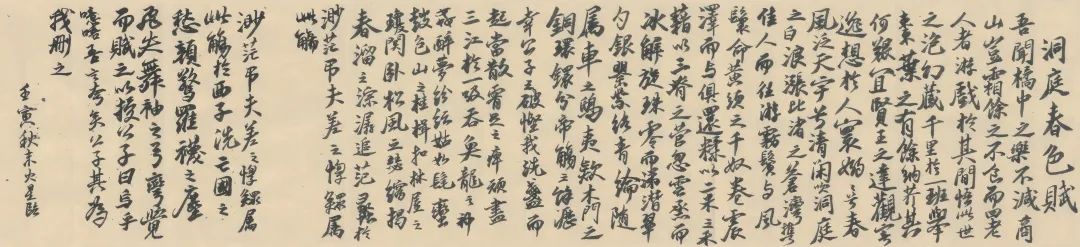 洞庭春色賦
吾聞橘中之樂不減商
山豈霜餘之不食而四老
人者游戲於其間悟此世
之泡幻藏千里於一班舉
棗葉之有餘納芥其
何艱宜賢王之達觀寄
逸想於人寰嫋嫋兮春
風泛天宇兮清閑吹洞庭
之白浪漲北渚之蒼灣攜
佳人而往游霧鬢與風
鬟命黃頭之千奴卷震
澤而與俱還糅以二米之禾
藉以三脊之菅忽雲烝而
冰解旋珠零而涕潸翠
勺銀罌紫絡青綸隨
屬車之鴟夷款木門之
銅環鐶兮帝觴之餘瀝
幸公子之破慳我洗盞而
起嘗散腰足之痺頑盡
三江於一吸吞魚龍之神
姦醉夢紛紜始如髦蠻
鼓包山之桂楫扣林屋之
瓊關臥松風之瑟縮揭
春溜之淙潺追范蠡於
渺茫吊夫差之惸鰥屬
此觴
渺茫吊夫差之惸鰥屬
此觴於西子洗亡國之
愁顏驚羅襪之塵
飛失舞袖之弓彎覺
而賦之以授公子曰烏乎
噫嘻吾言夸矣公子其為
我刪之
壬寅秋末火星臨